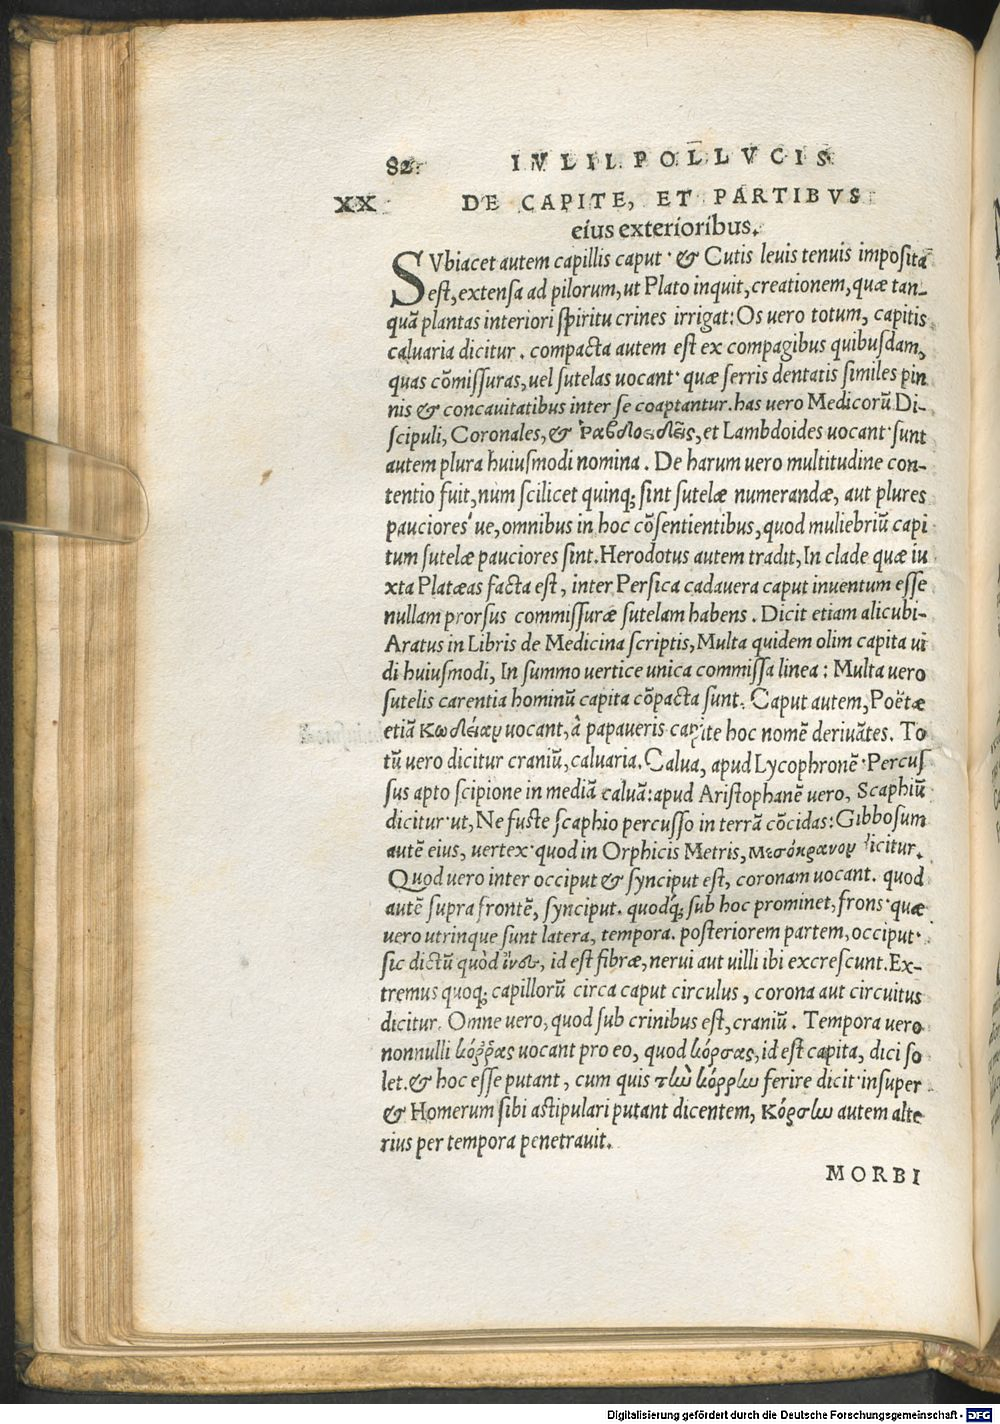 82 IVLII POLLVCIS
XX DE CAPITE, ET PARTIBVS
eius exterioribus.
SVbiacet autem capillis caput · & Cutis levis tenuis imposita
est, extensa ad pilorum, ut Plato inquit, creationem, quæ tan-
quā plantas interiori spiritu crines irrigat: Os vero totum, capitis
calvaria dicitur. compacta autem est ex compagibus quibusdam,
quas cōmissuras, vel sutelas vocant · quæ serris dentatis similes pin
nis & concavitatibus inter se coaptantur. has vero Medicorū Di-
scipuli, Coronales, & Ῥαβδοειδεῖς, et Lambdoides vocant · sunt
autem plura huiusmodi nomina. De harum vero multitudine con-
tentio fuit, num scilicet quinq; sint sutelæ numerandæ, aut plures
pauciores've, omnibus in hoc cōsentientibus, quod muliebriū capi
tum sutelæ pauciores sint. Herodotus autem tradit, In clade quæ iu
xta Platæas facta est, inter Persica cadavera caput inventum esse
nullam prorsus commissuræ sutelam habens. Dicit etiam alicubi-
Aratus in Libris de Medicina scriptis, Multa quidem olim capita vi
di huiusmodi, In summo vertice unica commissa linea: Multa vero
sutelis carentia hominū capita cōpacta sunt. Caput autem, Poëtæ
etiā Κωδείαν vocant, à papaveris capite hoc nomē derivātes. To
tū vero dicitur craniū, calvaria. Calva, apud Lycophronē · Percus
sus apto scipione in mediā calvā: apud Aristophanē vero, Scaphiū
dicitur · ut, Ne fuste scaphio percusso in terrā cōcidas: Gibbosum
autē eius, vertex · quod in Orphicis Metris, Μεσόκρανον dicitur.
Quod vero inter occiput & synciput est, coronam vocant. quod
autē supra frontē, synciput. quodq; sub hoc prominet, frons · quæ
vero utrinque sunt latera, tempora. posteriorem partem, occiput ·
sic dictū quòd ἶνες, id est fibræ, nervi aut villi ibi excrescunt. Ex-
tremus quoq; capillorū circa caput circulus, corona aut circuitus
dicitur. Omne vero, quod sub crinibus est, craniū. Tempora vero
nonnulli κόῤῥας vocant pro eo, quod κόρσας, id est capita, dici so
let. & hoc esse putant, cum quis τὼ κόρρω ferire dicit · insuper
& Homerum sibi astipulari putant dicentem, Κόρσω autem alte
rius per tempora penetravit.
MORBI
Digitalisierung gefördert durch die Deutsche Forschungsgemeinschaft - DFG